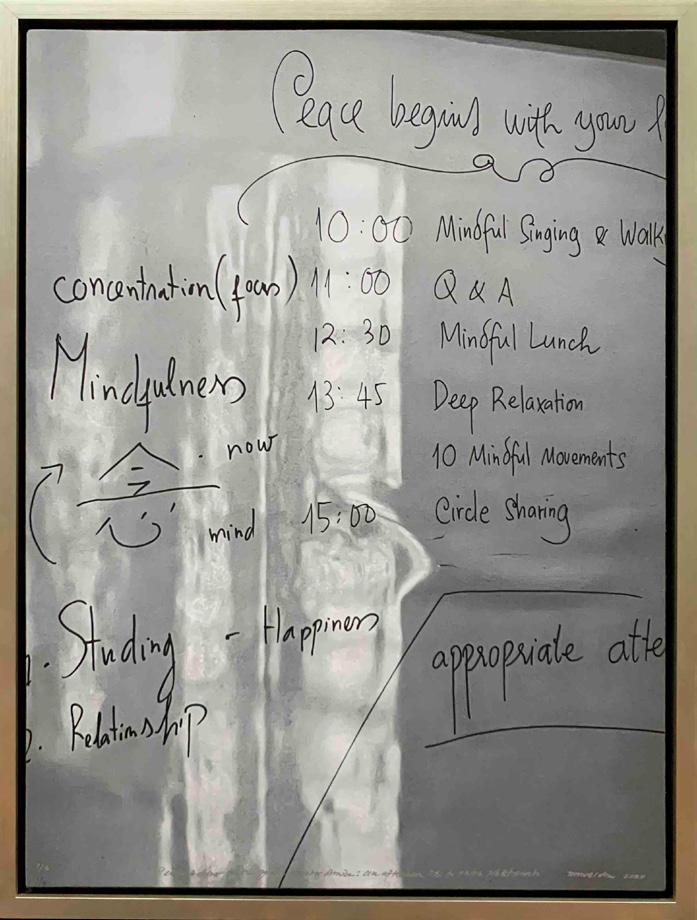 Peace begins with your
10:00 Mindful Singing & Walk
concentration (focus) 11:00 Q & A
12:30 Mindful Lunch
Mindfulness
13:45 Deep Relaxation
now
10 Mindful Movements
mind
15:00 Circle Sharing
Studing - Happiness
appropriate atte
2. Relationship